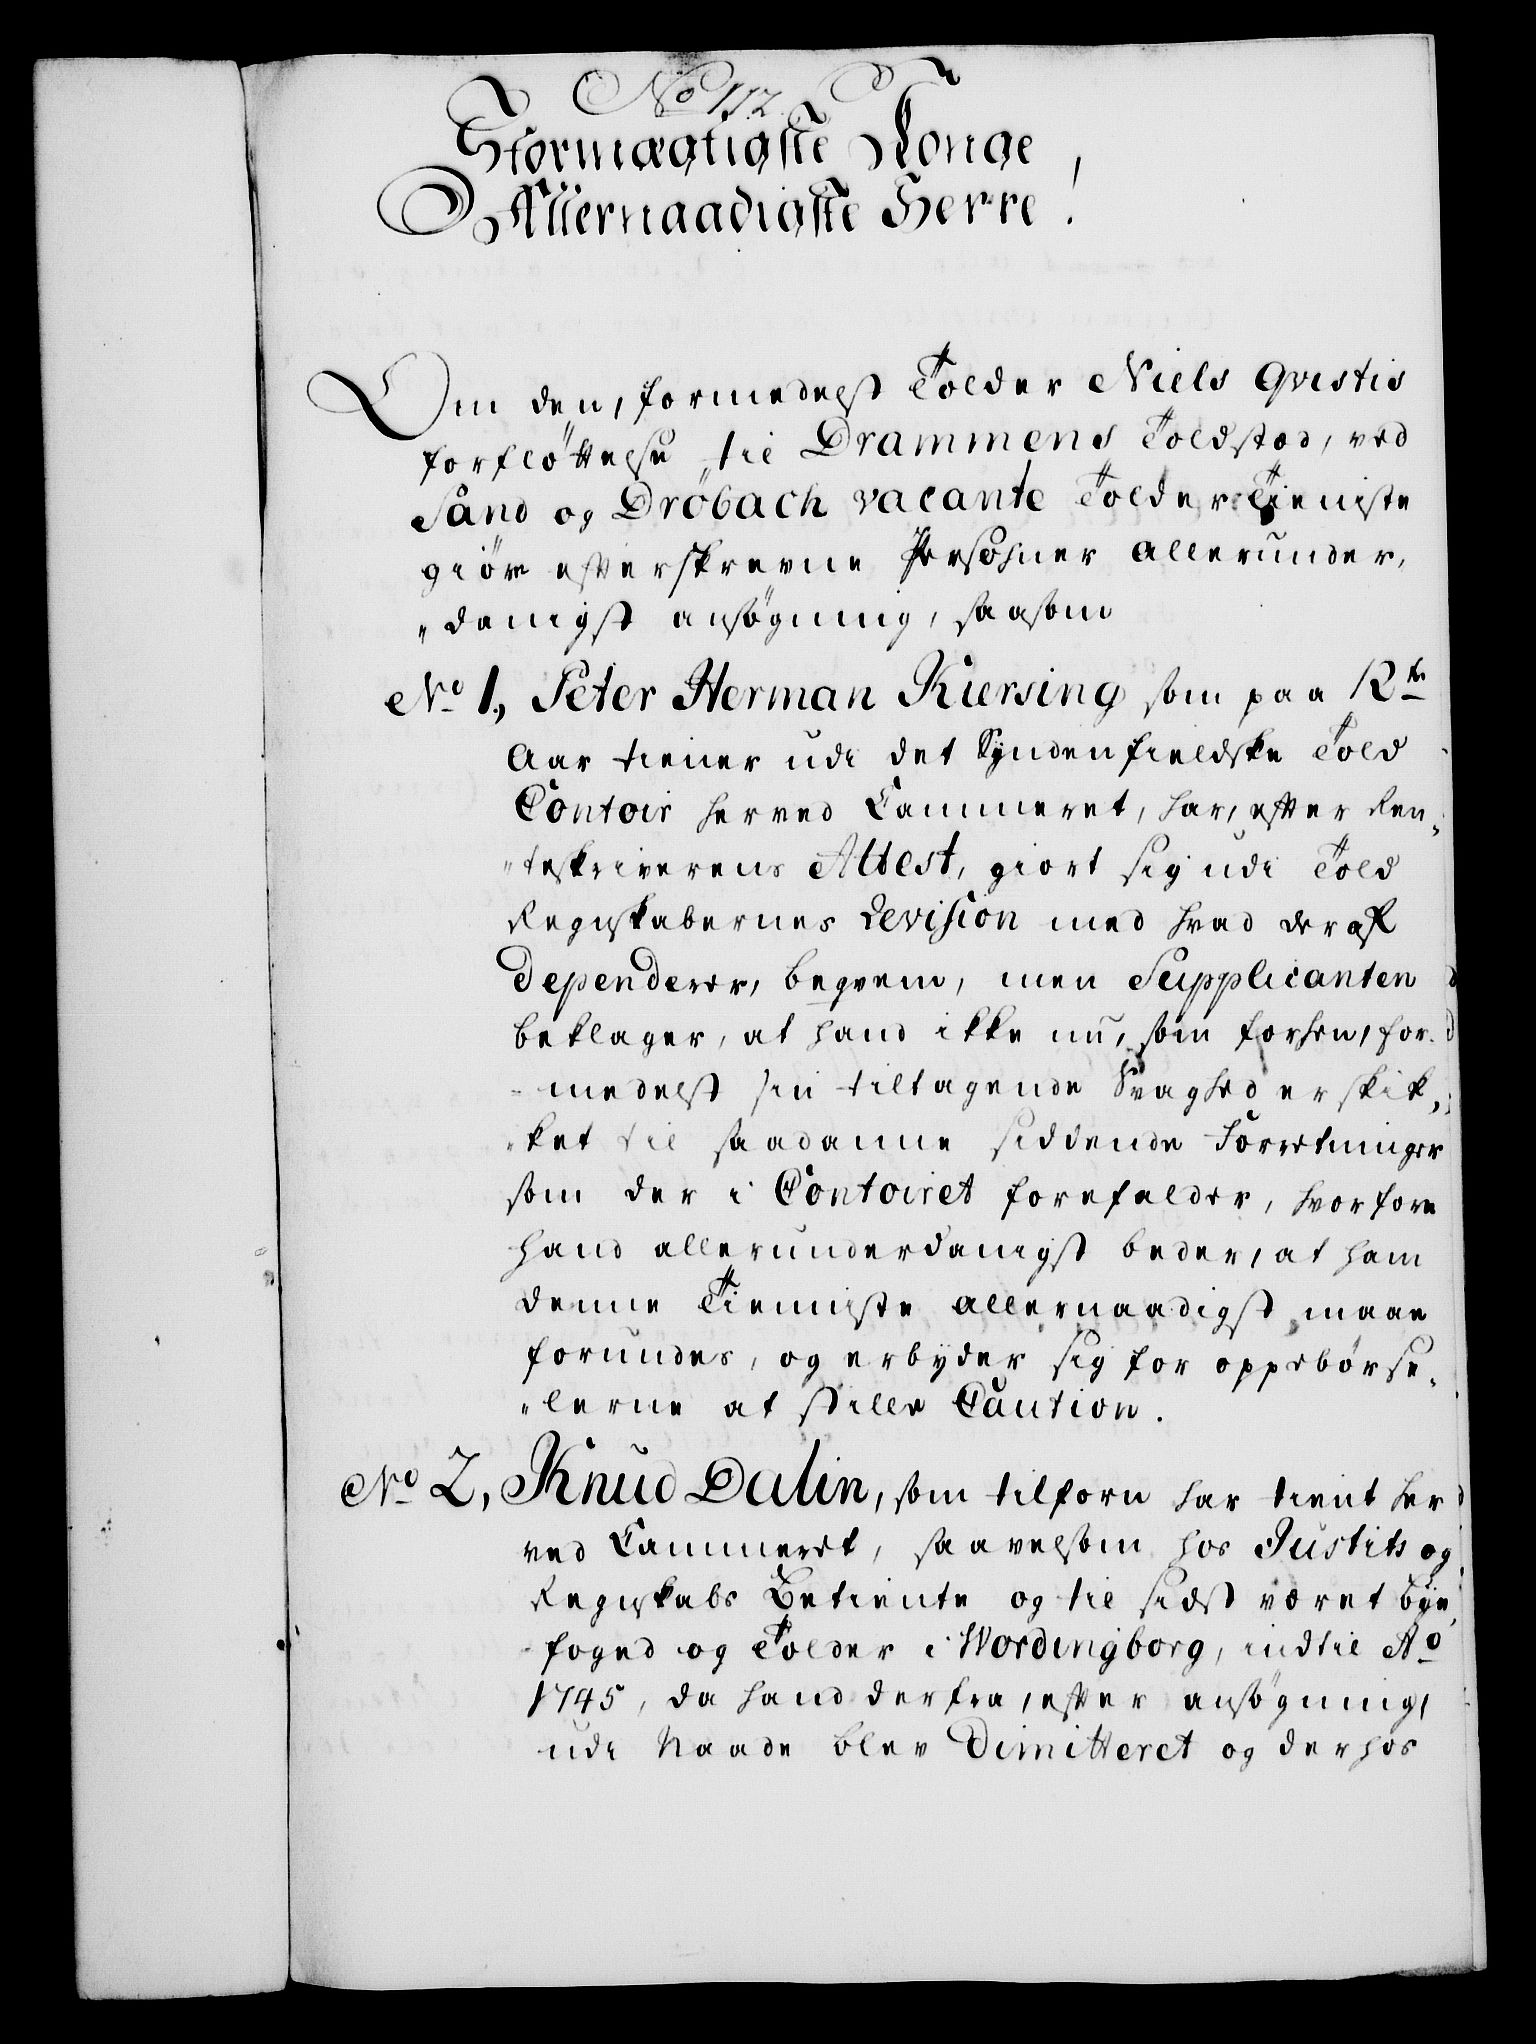 No 112.
Stormægtigste Konge,
Allernaadigste Herre!
Om den, formedelst Tolder Niels Qvistis
forfløttelse til Drammens Toldstæd, ved
Sand og Drøbach vacante Tolder Tieniste
giøre efterskrevne Persohner allerunder,
"danigst ansøgning, saasom
No 1, Peter Herman Kiersing som paa 12te
Aar tiener udi det Syndenfieldske Told
Contoir herved Cammeret, har, efter Ren,
"teskriverens Attest, giort sig udi Told
Regnskabernes Revision med hvad deraf
dependerer, beqvem, men Supplicanten
beklager, at hand ikke nu, som forhen, for-
-medelst sin tiltagende Svaghed er skik,
"ket til saadanne siddende Forretninger
som der i Contoiret forefalder, hvorfore
hand allerunderdanigst beder, at ham
denne Tienniste allernaadigst maae
forundes, og erbyder sig for oppebørse,
"lerne at stille Caution.
No 2, Knud Dalin, som tilforn har tient her
ved Cammeret, saavelsom hos Justits og
Regnskabs Betiente og til sidst været bye
foged og Tolder i Wordingborg, indtil Ao
1745, da hand derfra, efter ansøgning,
udi Naade blev Dimitteret og derhos